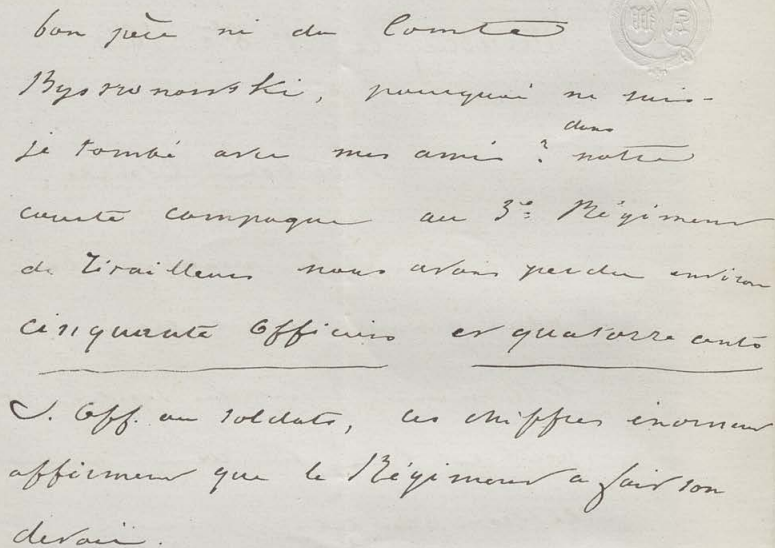 bon père ni du Comte
Bystronowski, pourquoi ne suis-
dans
je tombé avec mes amis ? notre
courte campagne au 3e Régiment
de Tirailleurs nous avons perdu environ
cinquante Officiers et quatorze cents
S. Off. ou soldats, ces chiffres énormes
affirment que le Régiment a fait son
devoir.